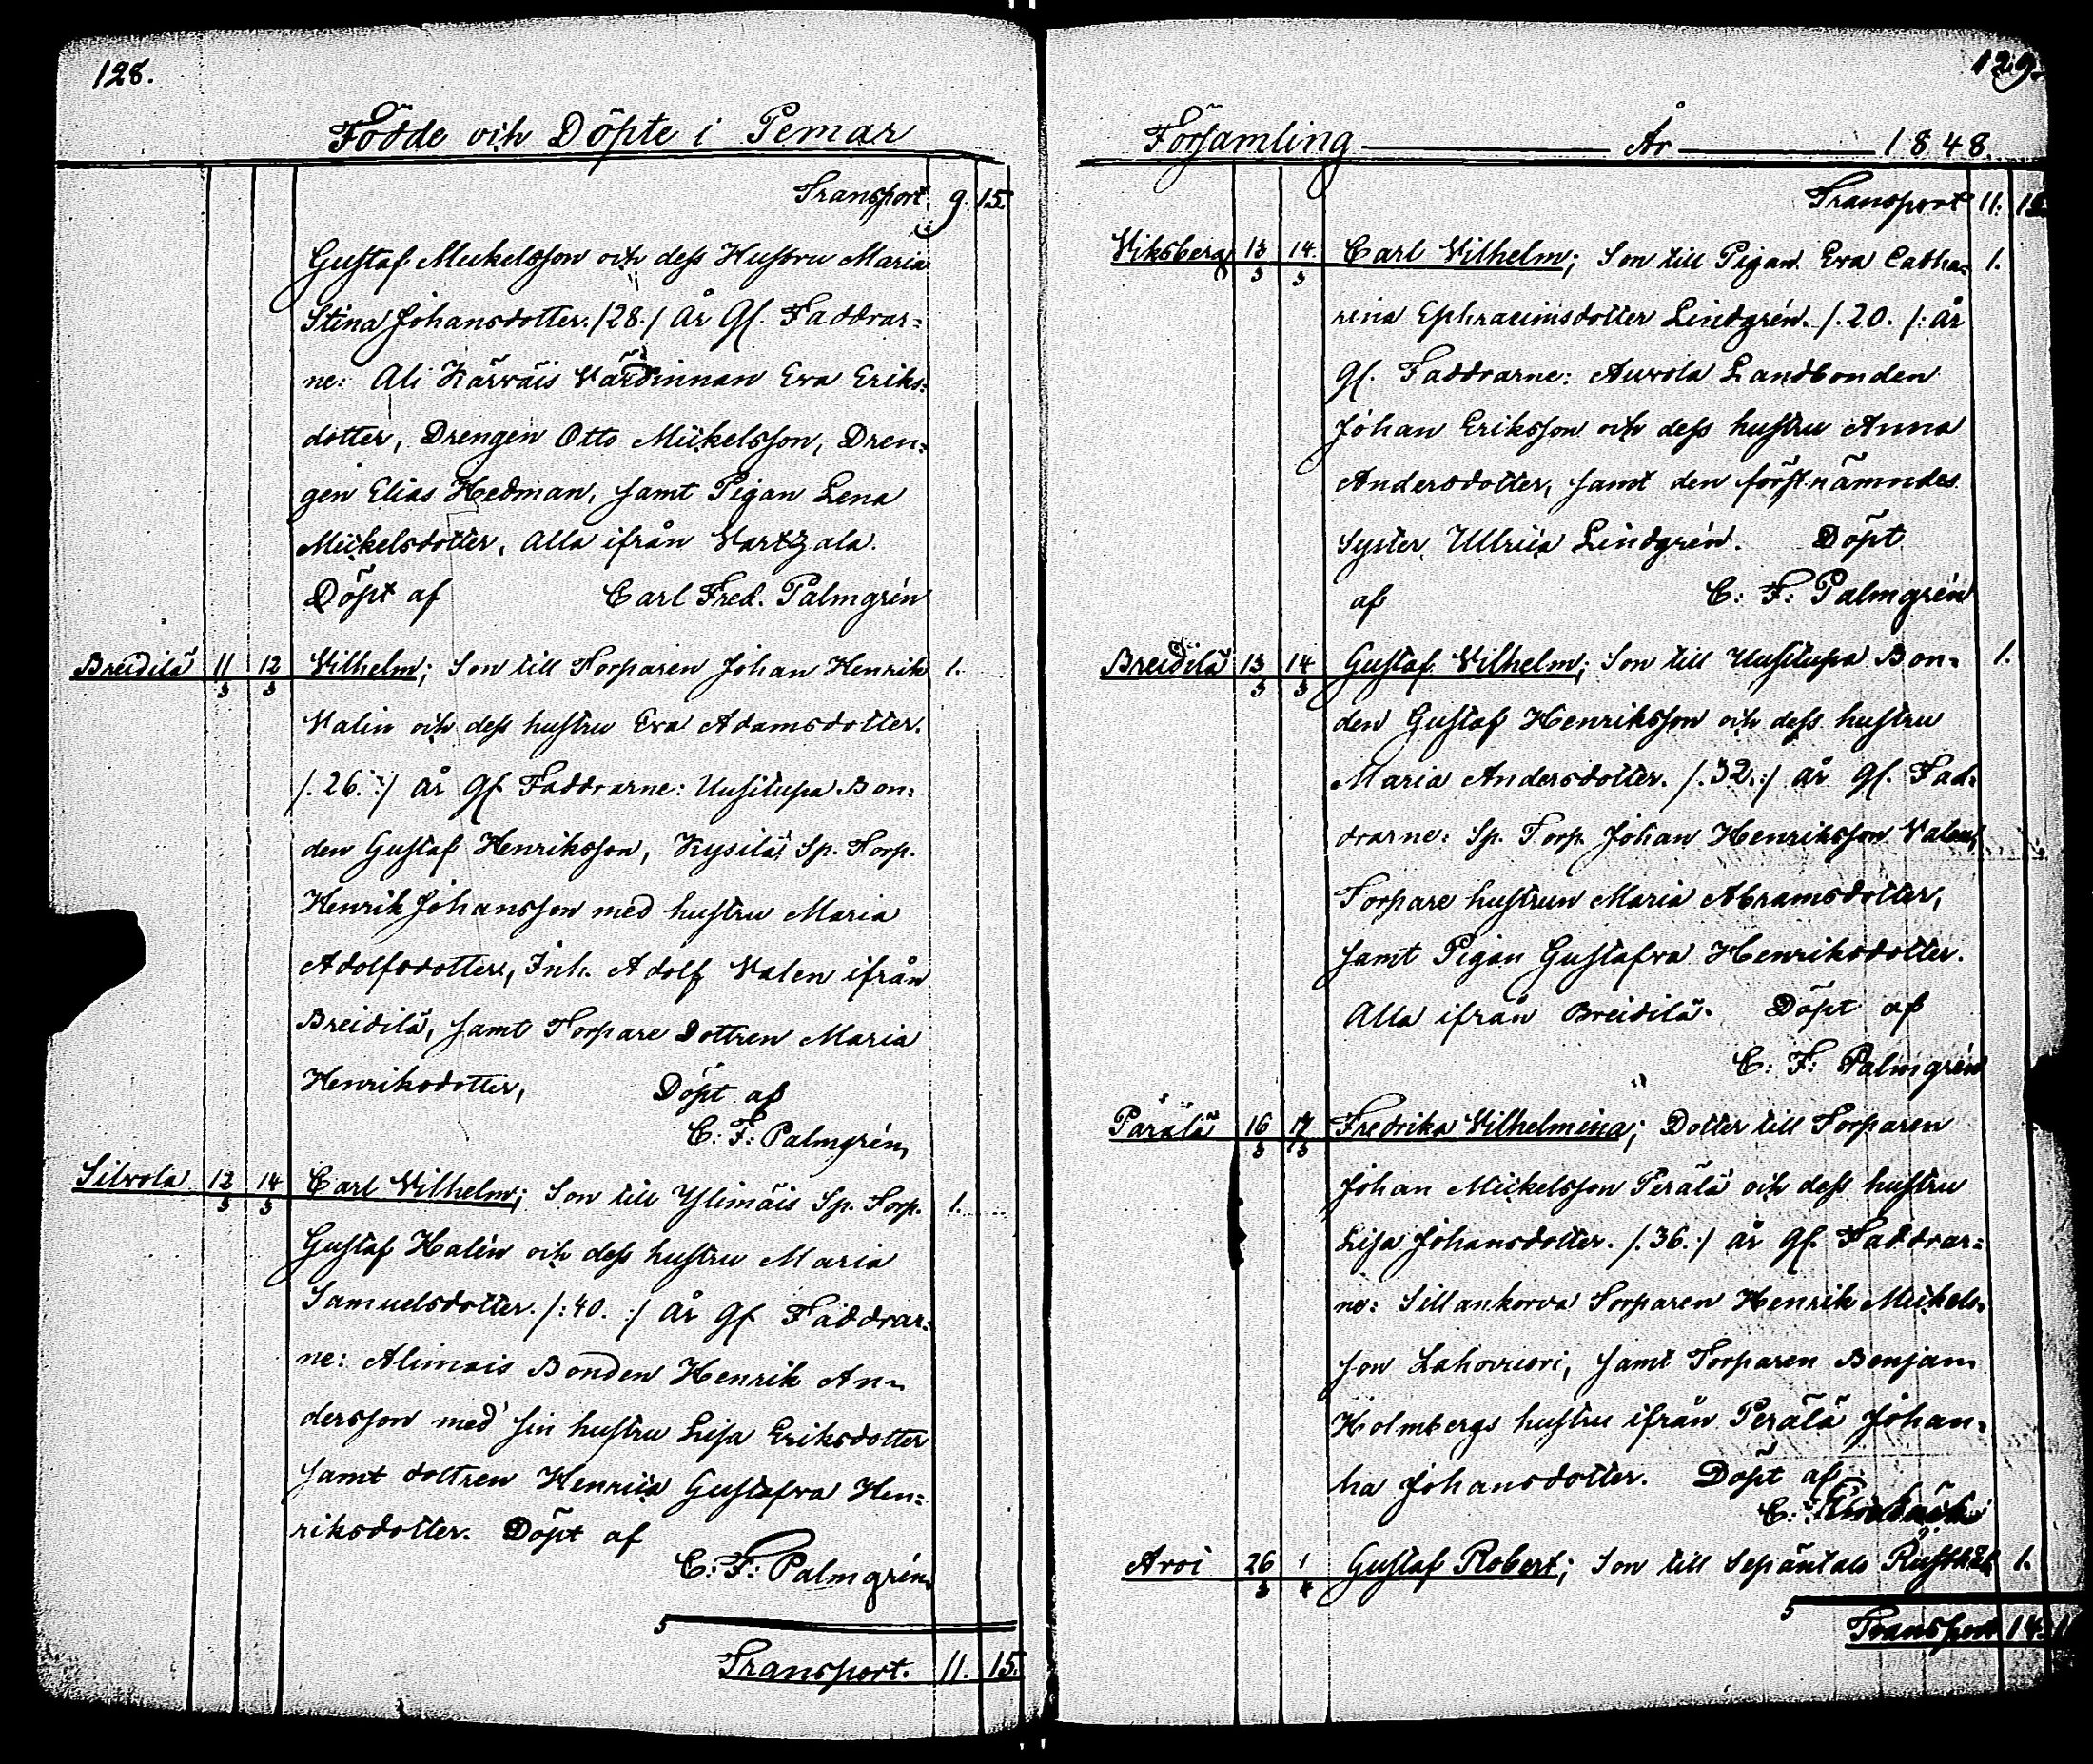 128.
Födde och Döpte i Pemar
Transport. 9. 15.
Gustaf Mickelsson och dess Hustru Maria
Stina Johansdotter. /28./ År Gl. Faddrar=
ne: Ali Kärväis Värdinnan Eva Eriks=
dotter, Drengen Otto Mickelsson, Dren=
gen Elias Hedman, samt Pigan Lena
Mickelsdotter, Alla ifrån Vartzala.
Döpt af Carl Fred. Palmgrén
Breidilä 11/3 12/3 Vilhelm; Son till Torparen Johan Henrik 1.
Valin och dess hustru Eva Adamsdotter.
/. 26. :/ år gl. Faddrarne: Uusitupa Bon=
den Gustaf Henriksson, Kysilä Sp. Torp.
Henrik Johansson med hustru Maria
Adolfsdotter, Inh. Adolf Valen ifrån
Breidilä, samt Torpare Dottren Maria
Henriksdotter, Döpt af
C: F: Palmgrén
Silvola 12/3 14/3 Carl Vilhelm; Son till Ylimäis Sp. Torp. 1.
Gustaf Halén och dess hustru Maria
Samuelsdotter. /: 40. :/ år gl. Faddrar=
ne: Alimais Bonden Henrik An=
dersson med sin hustru Lisa Eriksdotter
samt dottren Henrica Gustafva Hen=
riksdotter. Döpt af
C: F: Palmgrén.
5
Transport. 11. 15.
129.
Församling År 1848.
Transport 11. 15.
Viksberg 13/3 14/3 Carl Vilhelm; Son till Pigan Eva Catha= 1.
rina Ephraimsdotter Lindgrén. /. 20. /: år
Gl. Faddrarne: Auvola Landbonden
Johan Eriksson och dess hustru Anna
Andersdotter, samt den förstnämndes
Syster Ullrica Lindgrén. Döpt
af C: F: Palmgrén
Breidilä 13/3 14/3 Gustaf Vilhelm; Son till Uusitupa Bon= 1.
den Gustaf Henriksson och dess hustru
Maria Andersdotter. /. 32. :/ år gl. Fad=
drarne: Sp. Torp. Johan Henriksson Valen,
Torpare hustrun Maria Abramsdotter,
samt Pigan Gustafva Henriksdotter.
Alla ifrån Breidilä. Döpt af
C: F: Palmgrén
Parälä 16/3 17/3 Fredrika Vilhelmina; Dotter till Torparen
Johan Mickelsson Perälä och dess hustru
Lisa Johansdotter. /. 36. :/ år gl. Faddrar=
ne: Sillankorva Torparen Henrik Mickels=
son Lahovuori, samt Torparen Benjam.
Holmbergs hustru ifrån Perälä Johan=
na Johansdotter. Döpt af
C:
Arvi 26/3 1/4 Gustaf Robert; Son till Sepäntalo Rusth. 1.
5
Transport 14.